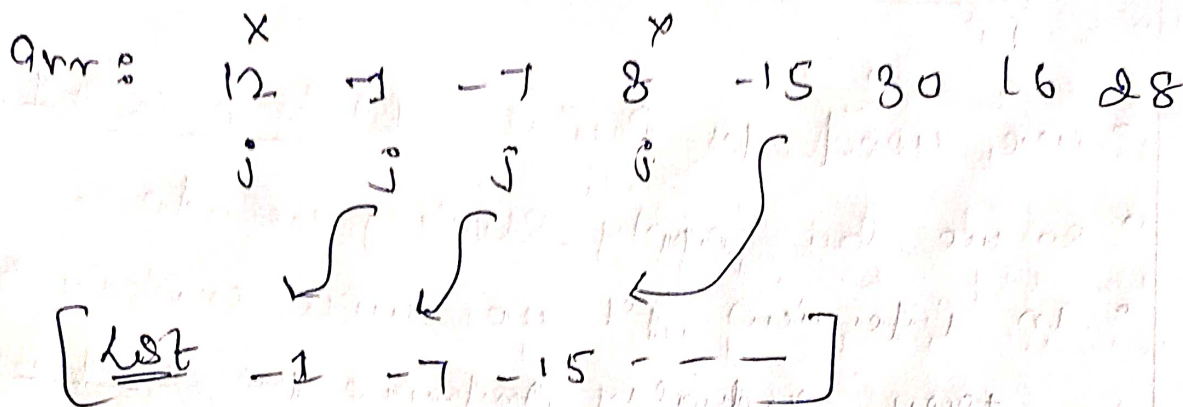 x x
arr: 12 -1 -7 8 -15 30 16 28
j j j j
[ List -1 -7 -15 - - - ]